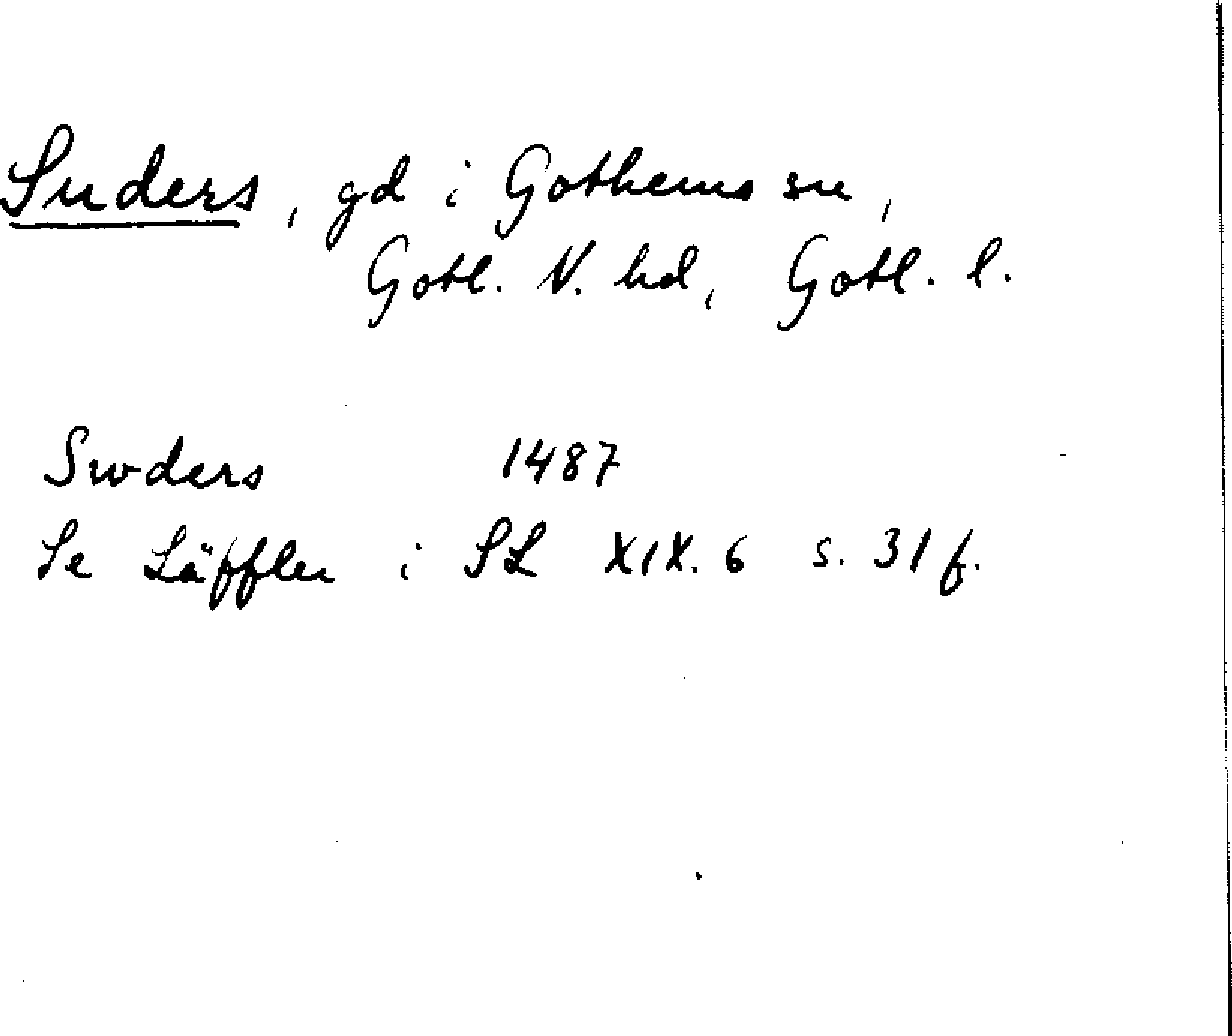 Suders, gd i Gothems sn,
Gotl. N. hd, Gotl. l.
Swders 1487
Se Läffler i SL XIX. 6 s. 31 f.